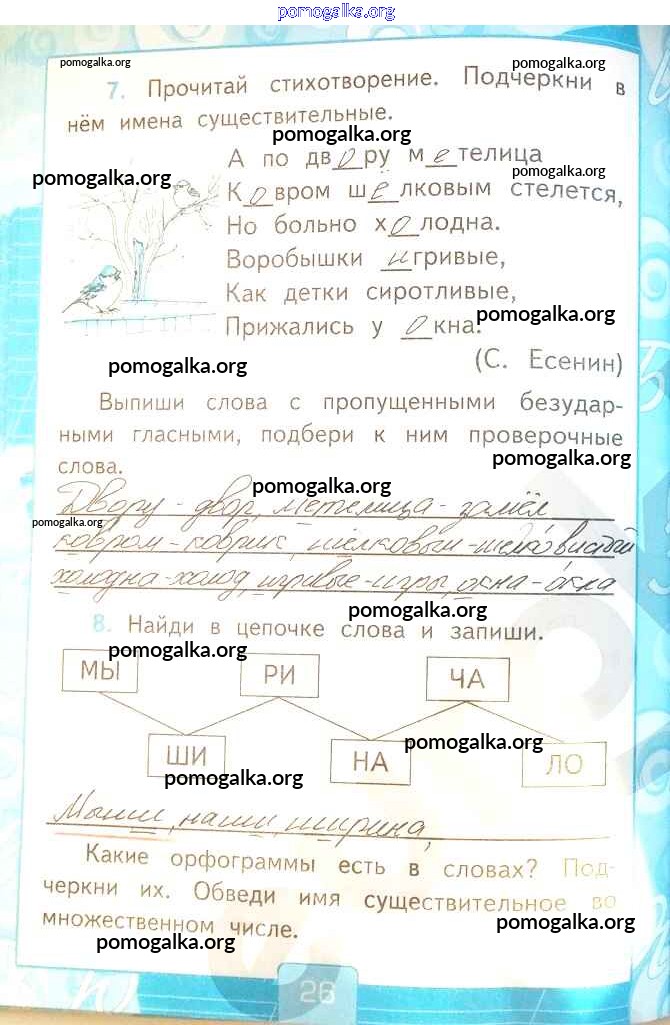 pomogalka.org
pomogalka.org pomogalka.org
7. Прочитай стихотворение. Подчеркни в
нём имена существительные.
pomogalka.org
А по двору метелица
pomogalka.org pomogalka.org
Ковром шёлковым стелется,
Но больно холодна.
Воробышки игривые,
Как детки сиротливые,
pomogalka.org
Прижались у окна.
(С. Есенин)
pomogalka.org
Выпиши слова с пропущенными безудар-
ными гласными, подбери к ним проверочные
pomogalka.org
слова.
pomogalka.org
Двору - двор, метелица - замёл
pomogalka.org
ковром - коврик, шёлковым - шелковистый
холодна - холод, игривые - игры, окна - окна
pomogalka.org
8. Найди в цепочке слова и запиши.
pomogalka.org
МЫ РИ ЧА
pomogalka.org
ШИ НА ЛО
pomogalka.org
Мыши, наши, ширина,
Какие орфограммы есть в словах? Под-
черкни их. Обведи имя существительное во
множественном числе.
pomogalka.org
pomogalka.org
26